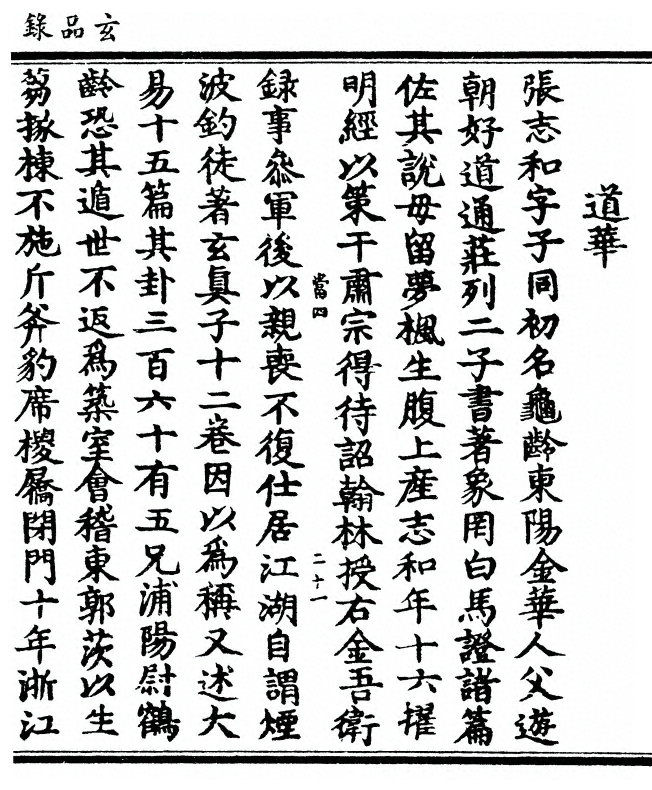 玄品錄
道華
張志和字子同初名龜齡東陽金華人父遊
朝好道通莊列二子書著象罔白馬證諸篇
佐其說母留夢楓生腹上産志和年十六擢
明經以策干肅宗得待詔翰林授右金吾衛
當四
二十一
録事叅軍後以親喪不復仕居江湖自謂煙
波釣徒著玄真子十二卷因以爲稱又述大
易十五篇其卦三百六十有五兄浦陽尉鶴
齡恐其遁世不返爲築室會稽東郭茨以生
芻椽棟不施斤斧豹席椶屩閉門十年浙江